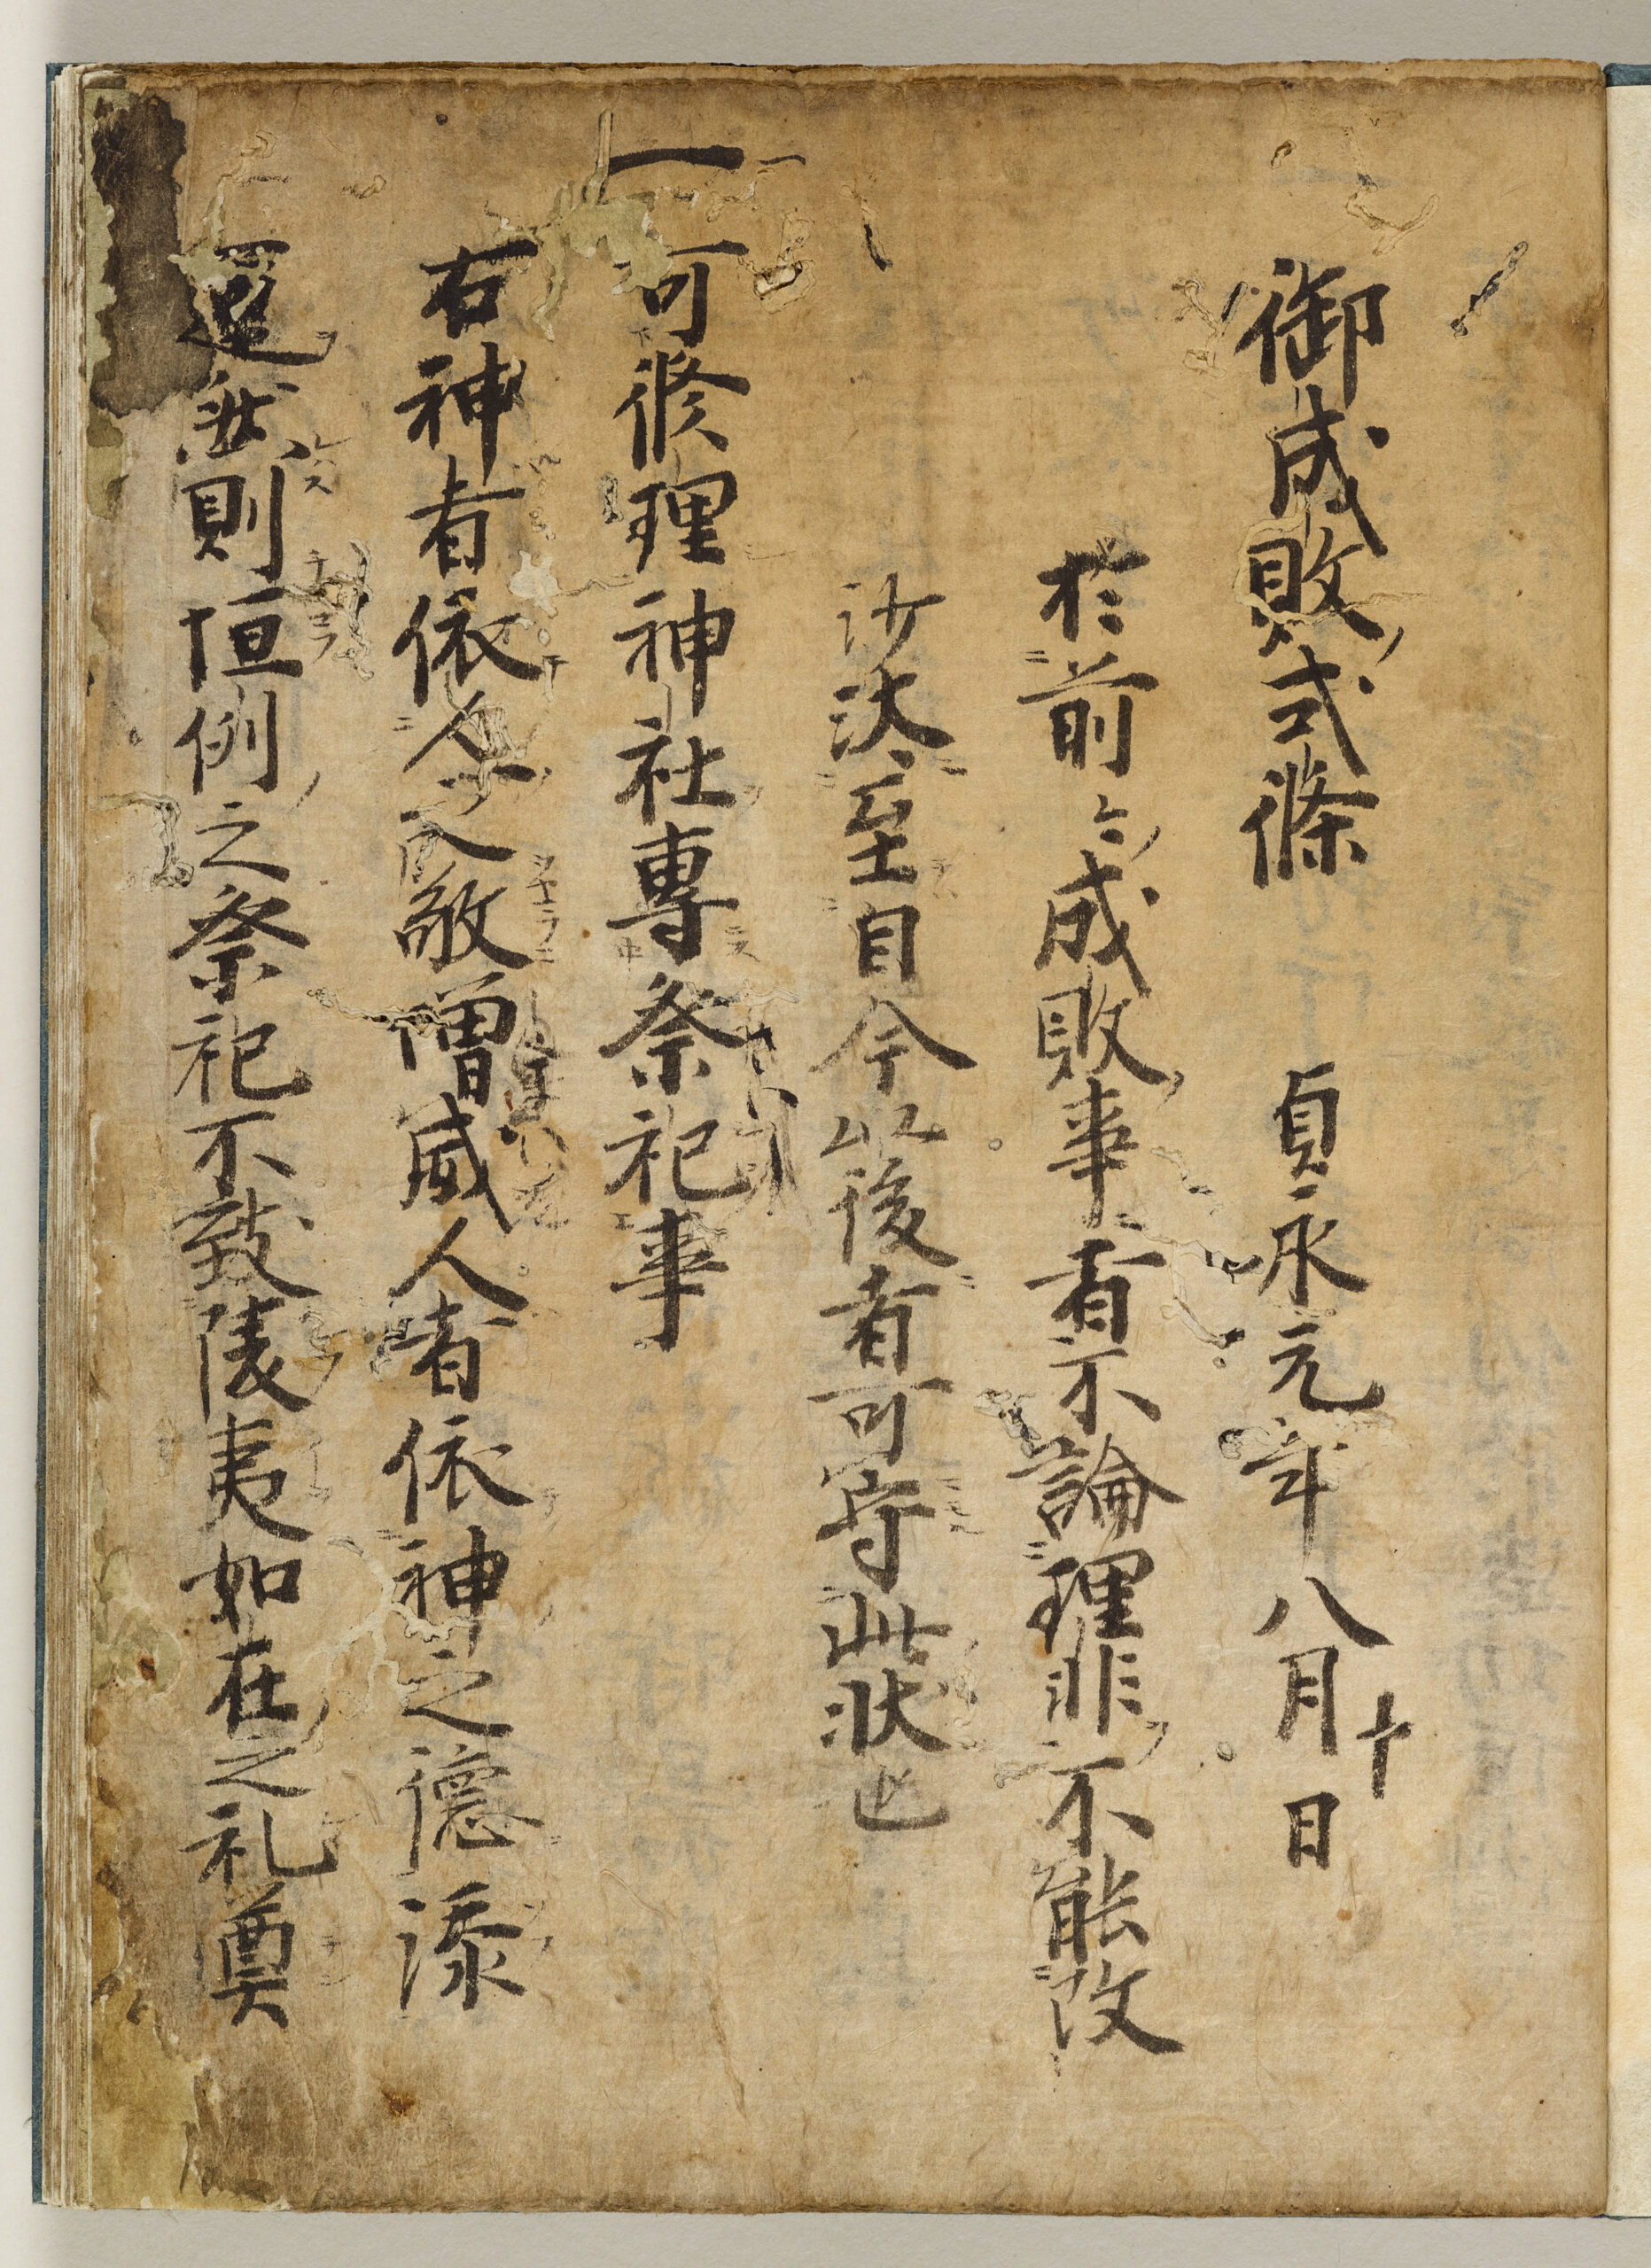 御成敗式條 貞永元年八月十日
於前々成敗事者不論理非不能改
沙汰至自今以後者可守此状也
一可修理神社專祭祀事
右神者依人之敬増威人者依神之德添
運然則恒例之祭祀不致陵夷如在之礼奠